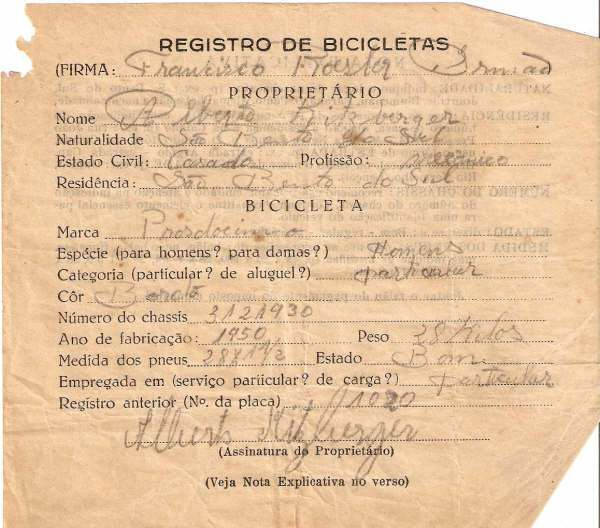 REGISTRO DE BICICLETAS
(FIRMA: Francisco Roesler Irmão
PROPRIETÁRIO
Nome Alberto Hitzberger
Naturalidade São Bento do Sul
Estado Civil: Casado Profissão: mecânico
Residência: São Bento do Sul
BICICLETA
Marca
Espécie (para homens? para damas?) Homens
Categoria (particular? de aluguel?) particular
Côr
Número do chassis 3121930
Ano de fabricação: 1950 Peso 28 Kilos
Medida dos pneus 28x1½ Estado Bom
Empregada em (serviço particular? de carga?) particular
Registro anterior (No. da placa) 1020
(Assinatura do Proprietário)
(Veja Nota Explicativa no verso)